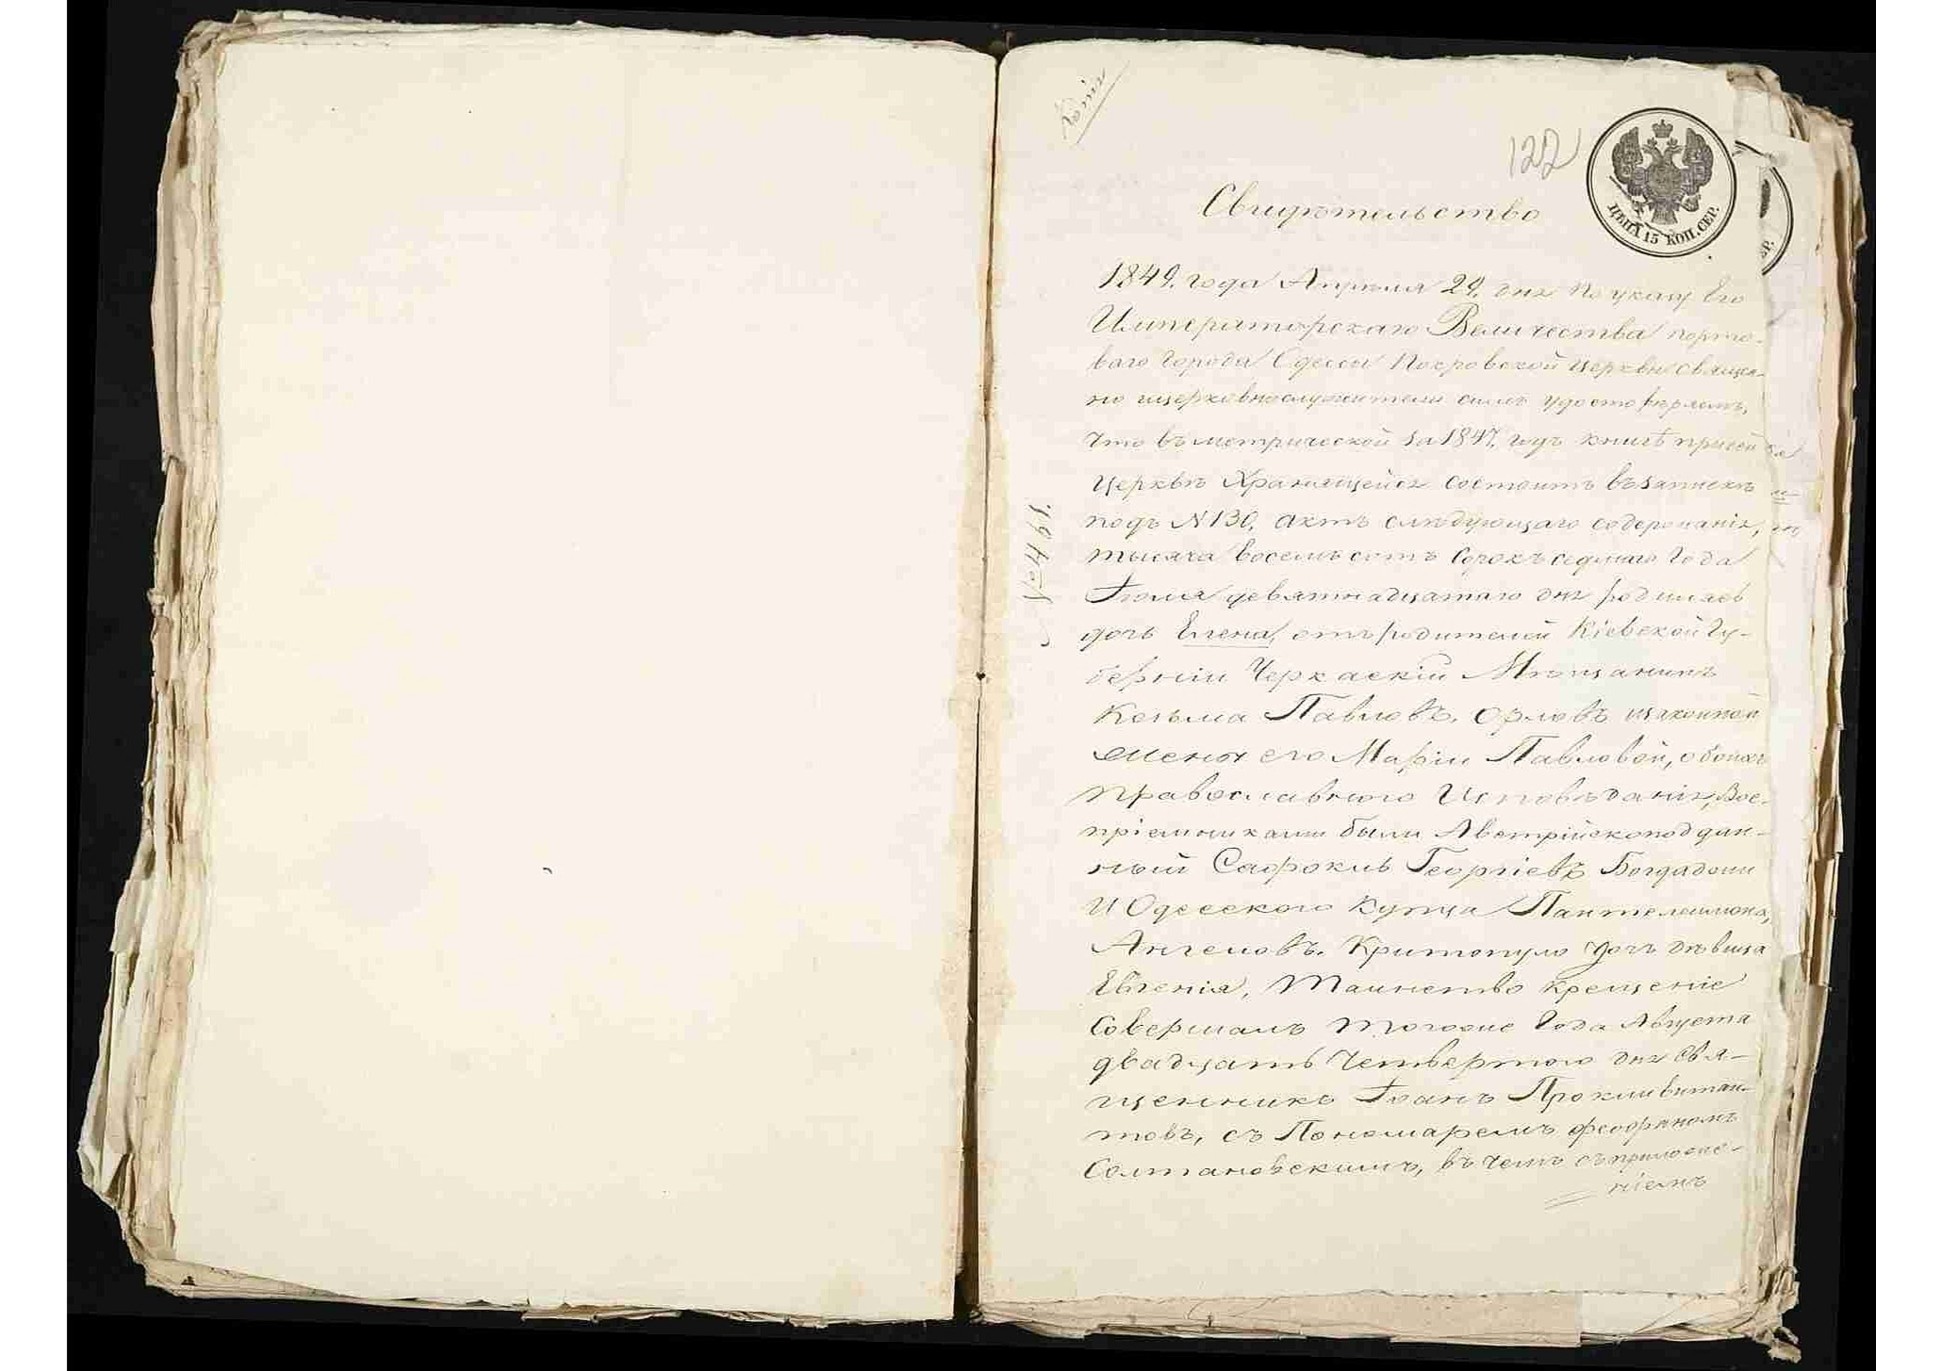 Копія
122
ЦѢНА 15 КОП. СЕР.
Свидѣтельство
1849. года Апрѣля 29. дня По указу Его
Императорскаго Величества порто-
ваго города Одессы Покровской церкви священ-
но ицерковнослужители симъ удостовѣряемъ,
что въ метрической за 1847. годъ книгѣ присей
Церкви Хранящейся состоитъ възапискѣ
подъ №130. актъ слѣдующаго содержанія,
тысяча восемъ сотъ сорокъ седмаго Года
Іюля девятнадцатаго дня родилась
дочь Елена, отъ родителей Кіевской Гу-
берніи Черкаскій Мѣщанинъ
Козьма Павловъ. Орловъ изаконной
жены его Маріи Павловой, обоихъ
православного Исповѣданія, Вос-
пріемниками были Австрійскоподдан-
ный Софокль Георгіевъ
И Одесского купца Пантелеимона,
Ангеловъ. Критопуло дочь дѣвица
Евгенія, Таинство крещеніе
Совершалъ тогоже Года Августа
двадцать Четвертого дня Свя-
щенникъ Іоанъ
товъ, съ Пономаремъ
Солтановскимъ, въ чемъ съприложе-
ніемъ